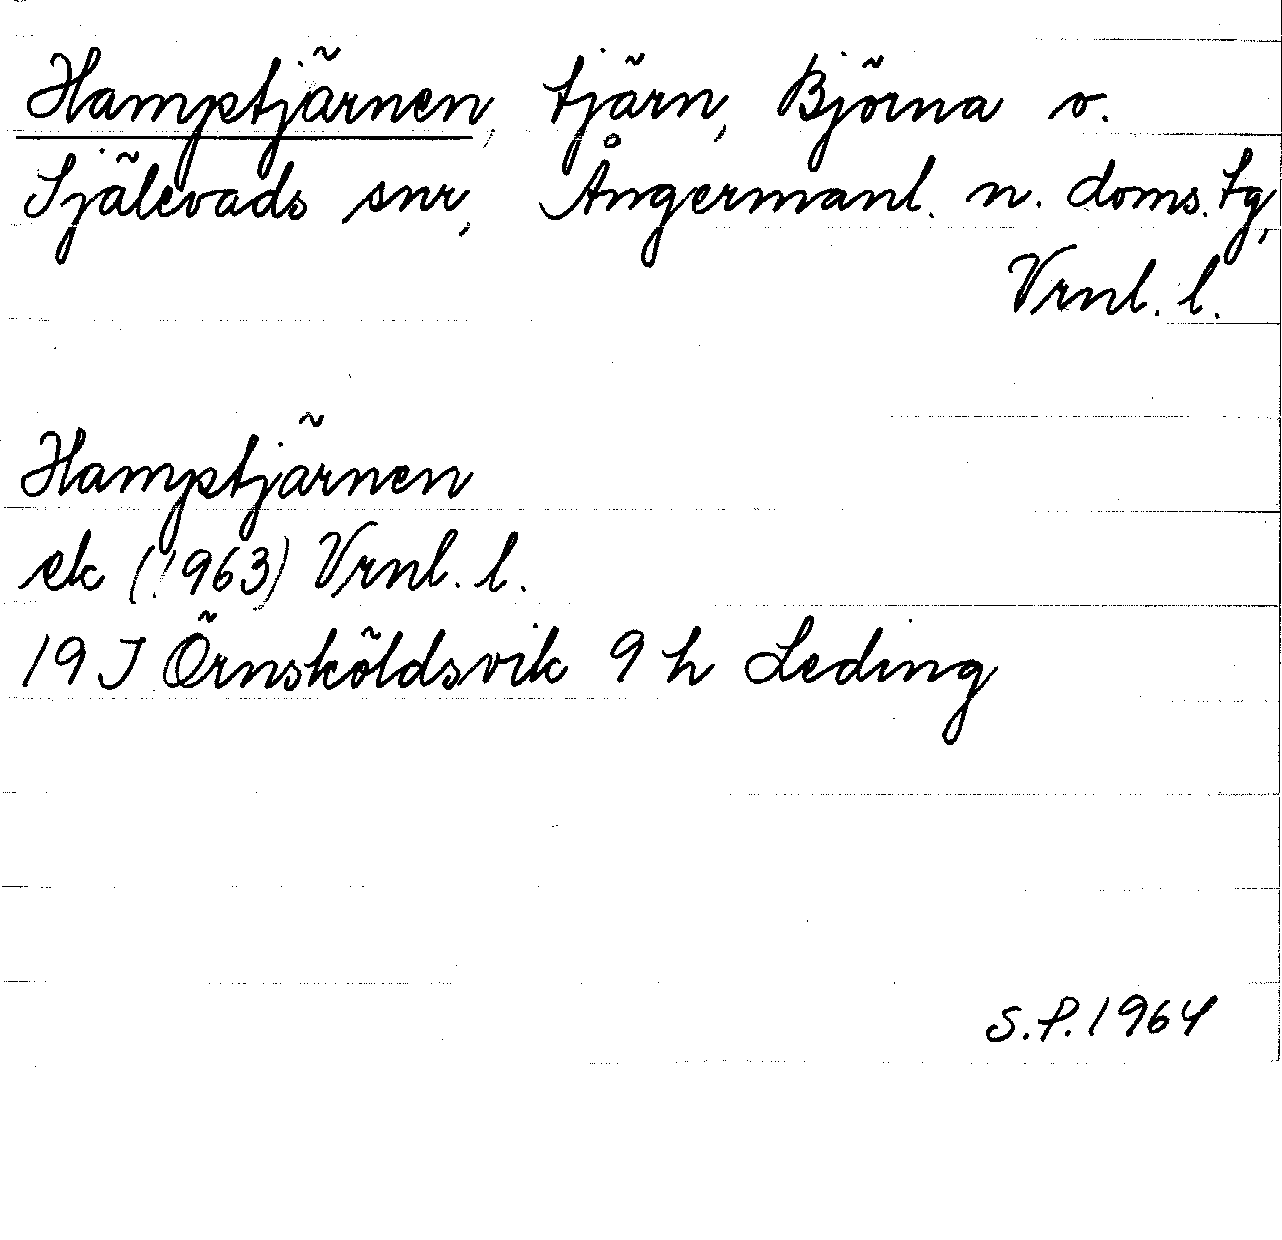 Hamptjärnen, tjärn, Björna o.
Själevads snr, Ångermanl. n. doms. tg,
Vrnl. l.
Hamptjärnen
ek (1963) Vrnl. l.
19 J Örnsköldsvik 9 h Leding
S.P. 1964